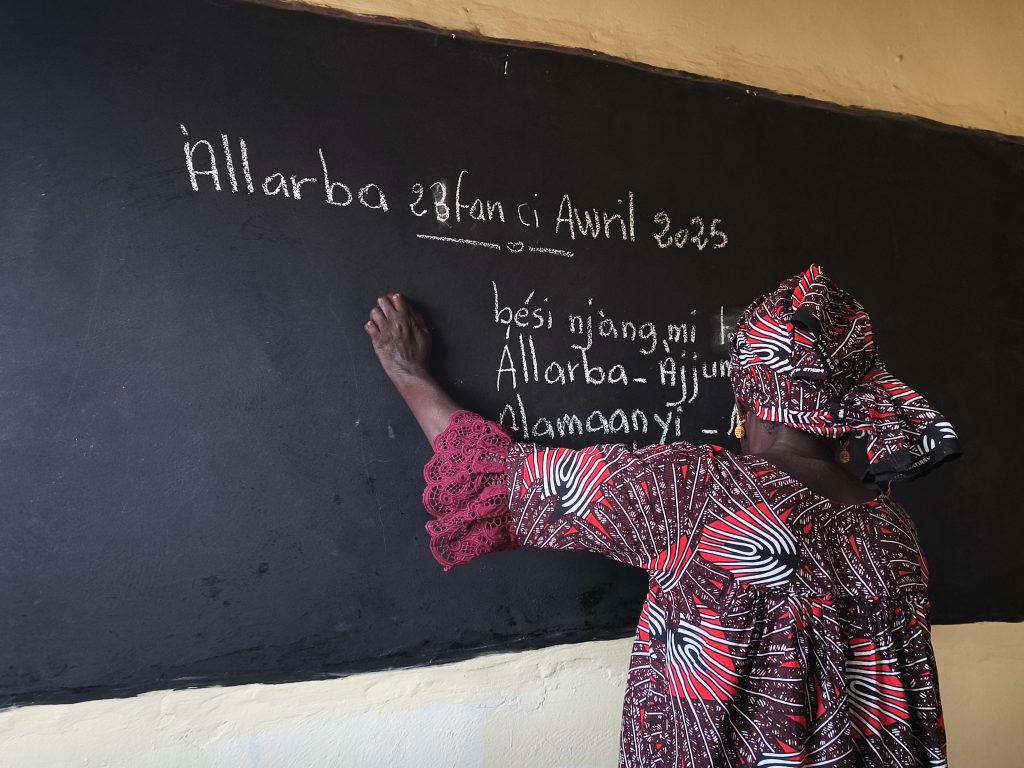 Àllarba 23 fan ci Awril 2025
bési njàng mi
Àllarba - Àjjum
alamaanyi -